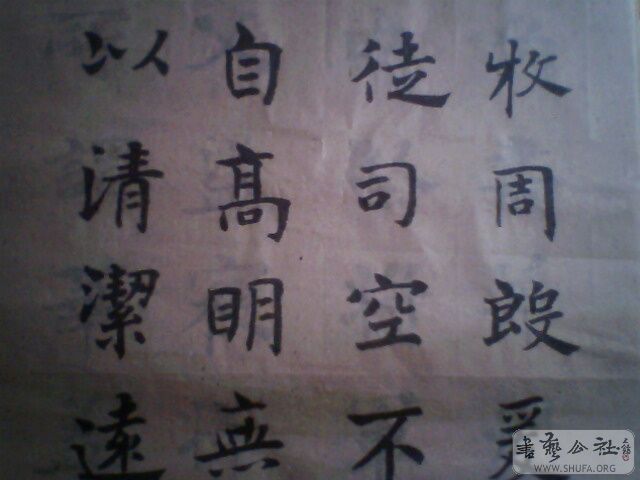 牧周殷
徒司空不
自高明無
以清潔遠
書藝公社
WWW.SHUFA.ORG